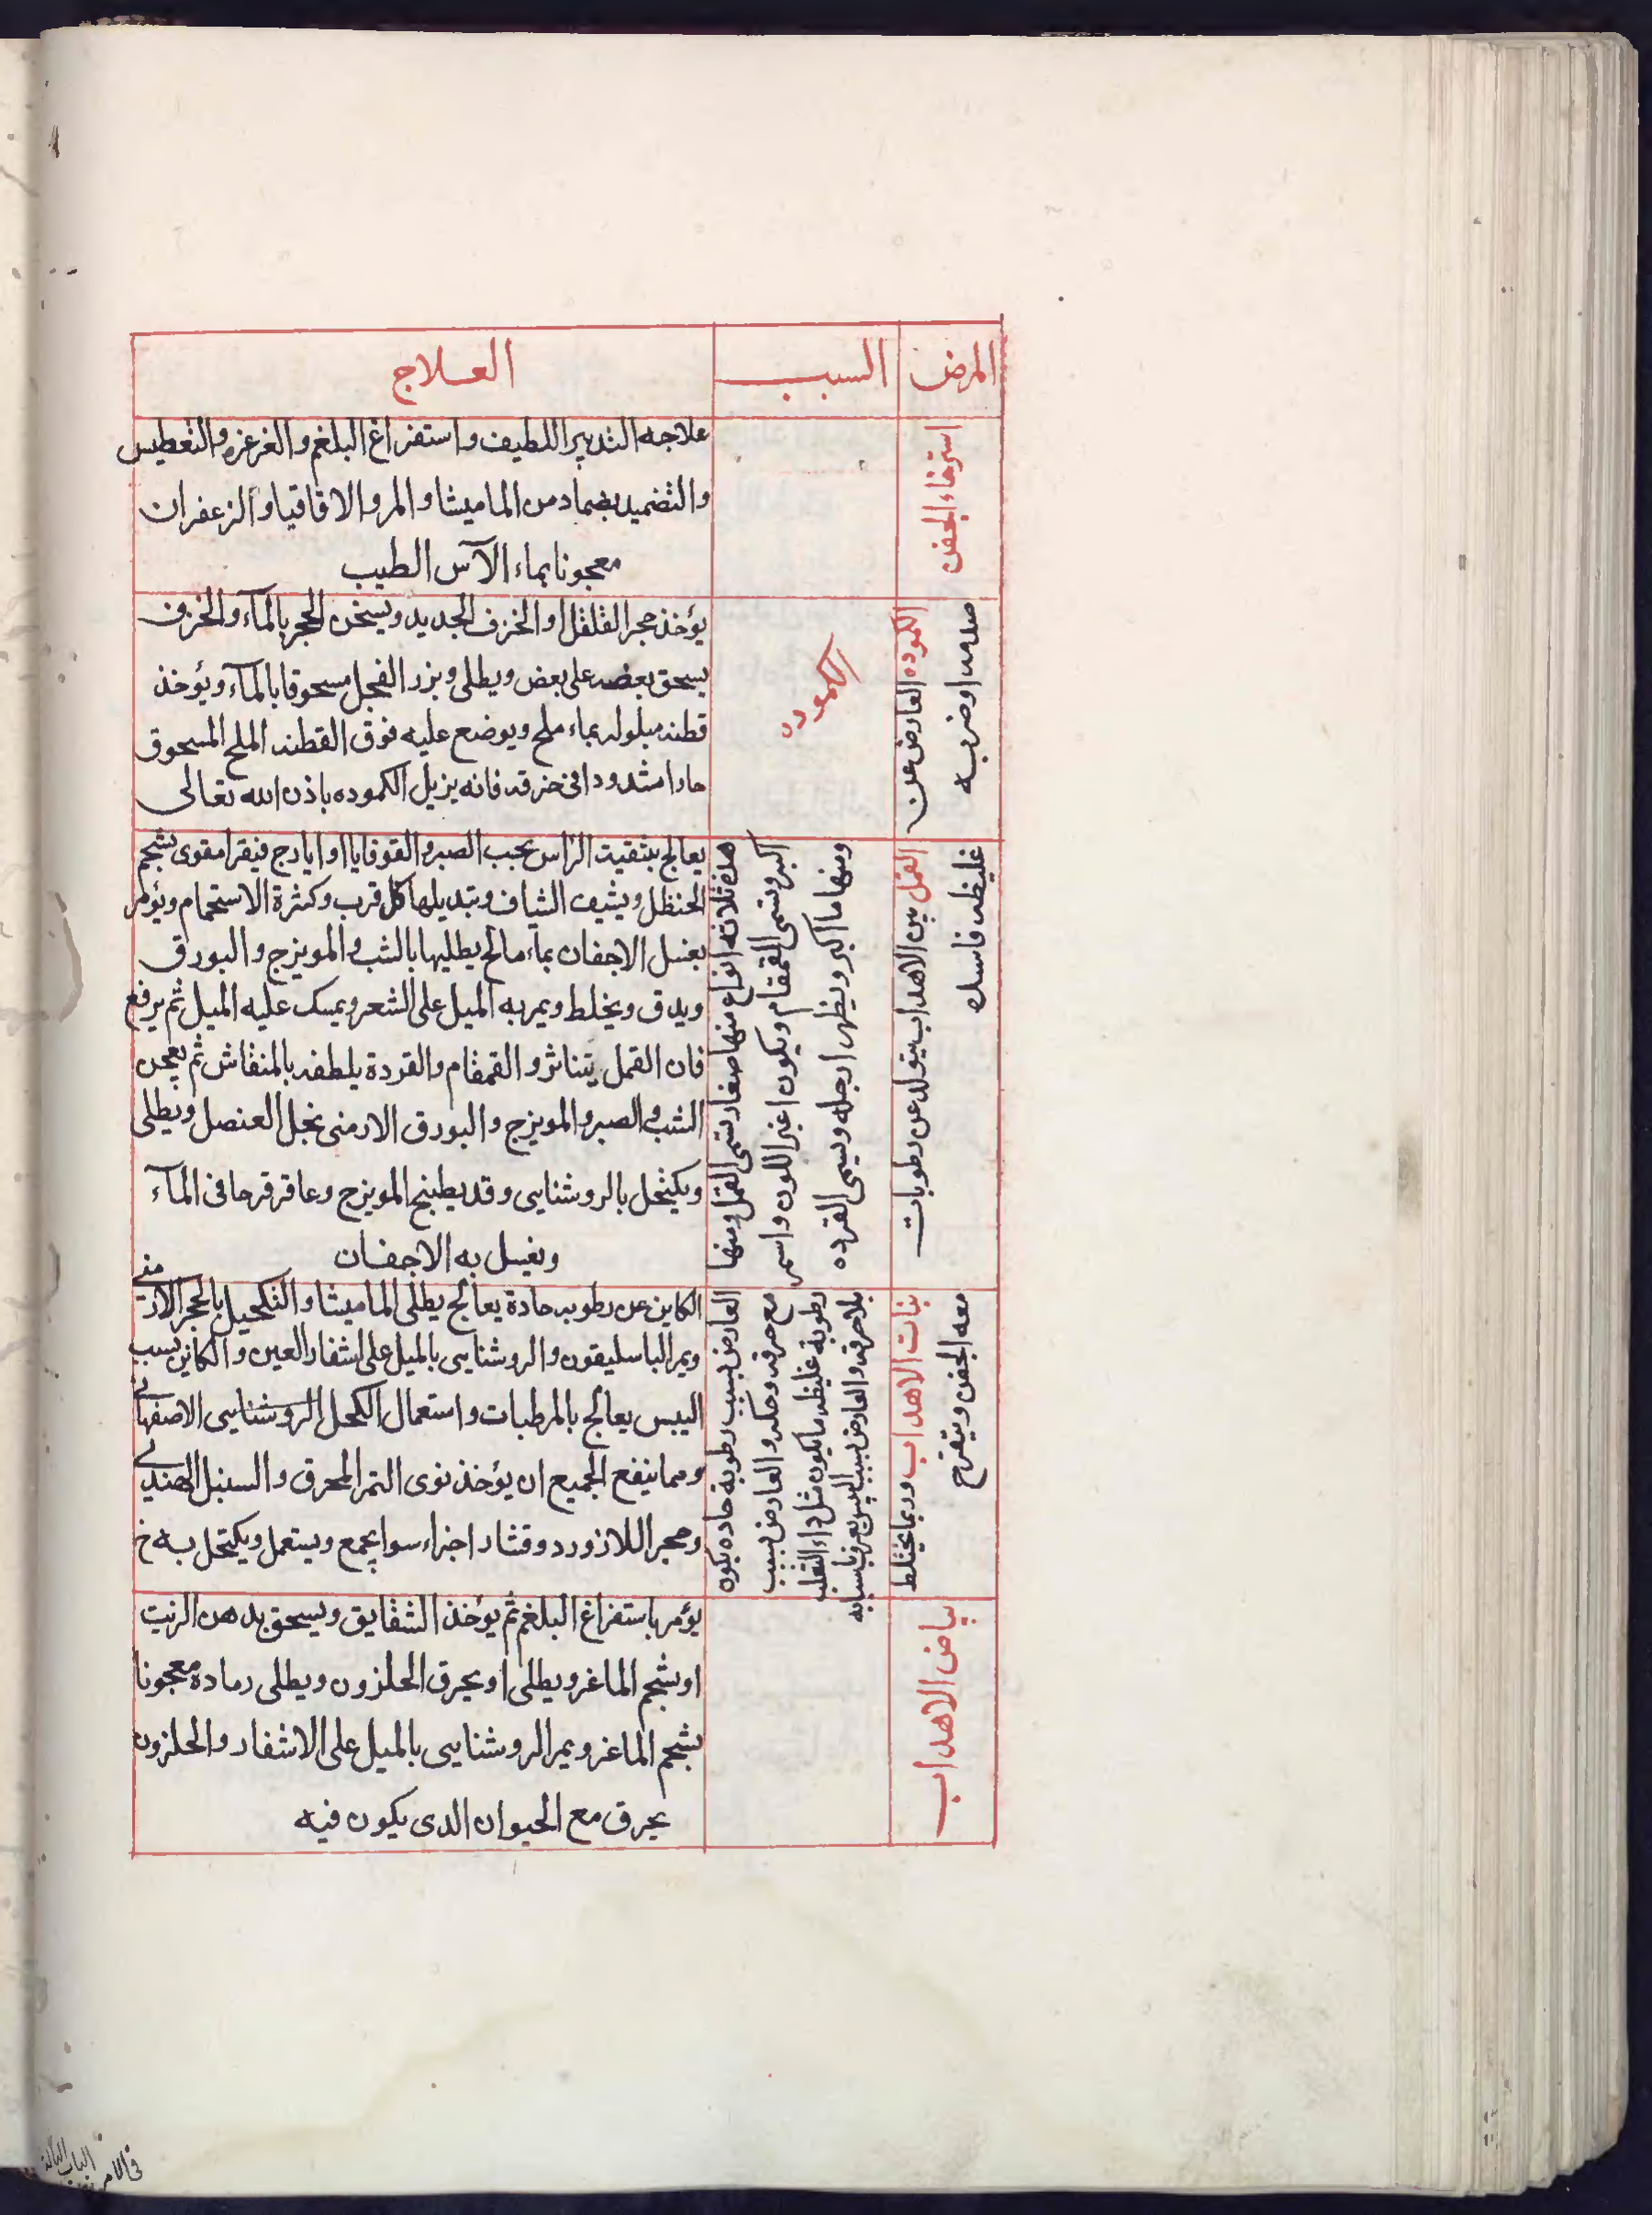 المرض
السبب
العلاج
استرخاء الجفن
علاجه التدبير اللطيف واستفراغ البلغم والغرغره والتعطيس
والتضميد بضماد من الماميثا والمر والاقاقيا والزعفران
معجونا بماء الآس الطيب
الكموده العارض عن
صدمه او ضربه
الكموده
يؤخذ حجر الفلفل او الخزف الجديد ويسخن الحجر بالمآء والخزف
يسحق بعضه على بعض ويطلى وبزر الفجل مسحوقا بالمآء ويؤخذ
قطنه مبلوله بماء ملح ويوضع عليه فوق القطنه الملح المسحوق
حارا مشدودا فى خرقه فانه يزيل الكموده باذن الله تعالى
القمل بين الاهداب يتولد عن رطوبات
غليظه فاسده
هذه ثلاثه انواع منها صغار تسمى القمل ومنها
اكبر وتسمى القمقام ويكون اغبر اللون واسمر
ومنها ما اكبر ويظهر ارجله ويسمى القرده
يعالج بتنقيت الراس بحب الصبر والقوقايا او ايارج فيقرا مقوى بشحم
الحنظل ويشيف الشياف وتبديلها كل قرب وكثرة الاستحمام ويؤمر
بغسل الاجفان بماء مالح يطليها بالشب والمويزج والبورق
ويدق ويخلط ويمر به الميل على الشعر ويمسك عليه الميل ثم يرفع
فان القمل يتناثر والقمقام والقردة يلطفه بالمنقاش ثم يعجن
الشب والصبر والمويزج والبورق الارمنى بخل العنصل ويطلى
ويكتحل بالروشنايى وقد يطبخ المويزج وعاقرقرحا فى المآء
ويغسل به الاجفان
بنات الاهداب وربما يختلط
معه الجفن ويتقرح
العارض بسبب رطوبة حاده يكون
مع حرقه وحكه والعارض بسبب
رطوبة غليظه ما يكون مثل داء الثعلب
بلا حرقه والعارض بسبب اليبس يعرف باسبابه
الكاين عن رطوبه حادة يعالج يطلى الماميثا والتكحيل بالحجر الارمنى
ويمر الباسليقون والروشنايى بالميل على اشفار العين والكاين بسبب
اليبس يعالج بالمرطبات واستعمال الكحل الروشنايى الاصفهانى
ومما ينفع الجميع ان يؤخذ نوى التمر المحرق والسنبل الهندى
وحجر اللازورد وقشار اجزاء سوا يجمع ويستعمل ويكتحل به خ
بياض الاهداب
يؤمر باستفراغ البلغم ثم يؤخذ الشقايق ويسحق بدهن الزيت
او بشحم الماعز ويطلى او يحرق الحلزون ويطلى رمادة معجونا
بشحم الماعز ويمر الروشنايى بالميل على الاشفار والحلزون
يحرق مع الحيوان الدى يكون فيه